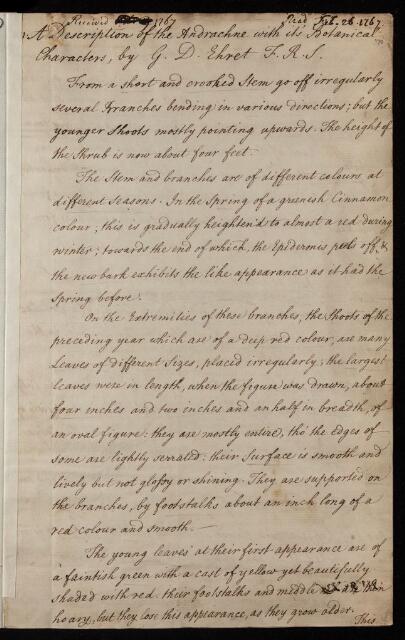 Received 1767 Read Feb. 26. 1767.
A Description of the Andrachne with its Botanical
Characters, by G. D. Ehret F. R. S.
From a short and crooked Stem go off irregularly
several Branches bending in various directions; but the
younger Shoots mostly pointing upwards. The height of
the Shrub is now about four feet
The Stem and branches are of different colours at
different Seasons. In the Spring of a greenish Cinnamon
colour; this is gradually heighten'd to almost a red during
winter; towards the end of which, the Epidermis peels off, &
the new bark exhibits the like appearance as it had the
Spring before.
On the Extremities of these branches, the Shoots of the
preceding year which are of a deep red colour, are many
Leaves of different Sizes, placed irregularly; the largest
leaves were in length, when the figure was drawn, about
four inches and two inches and an half in breadth, of
an oval figure: they are mostly entire, tho' the Edges of
some are lightly serrated: their Surface is smooth and
lively but not glossy or shining. They are supported on
the branches, by footstalks about an inch long of a
red colour and smooth.
The young leaves at their first appearance are of
a faintish green with a cast of yellow yet beautifully
shaded with red: their footstalks and middle
hoary, but they lose this appearance, as they grow older.
This